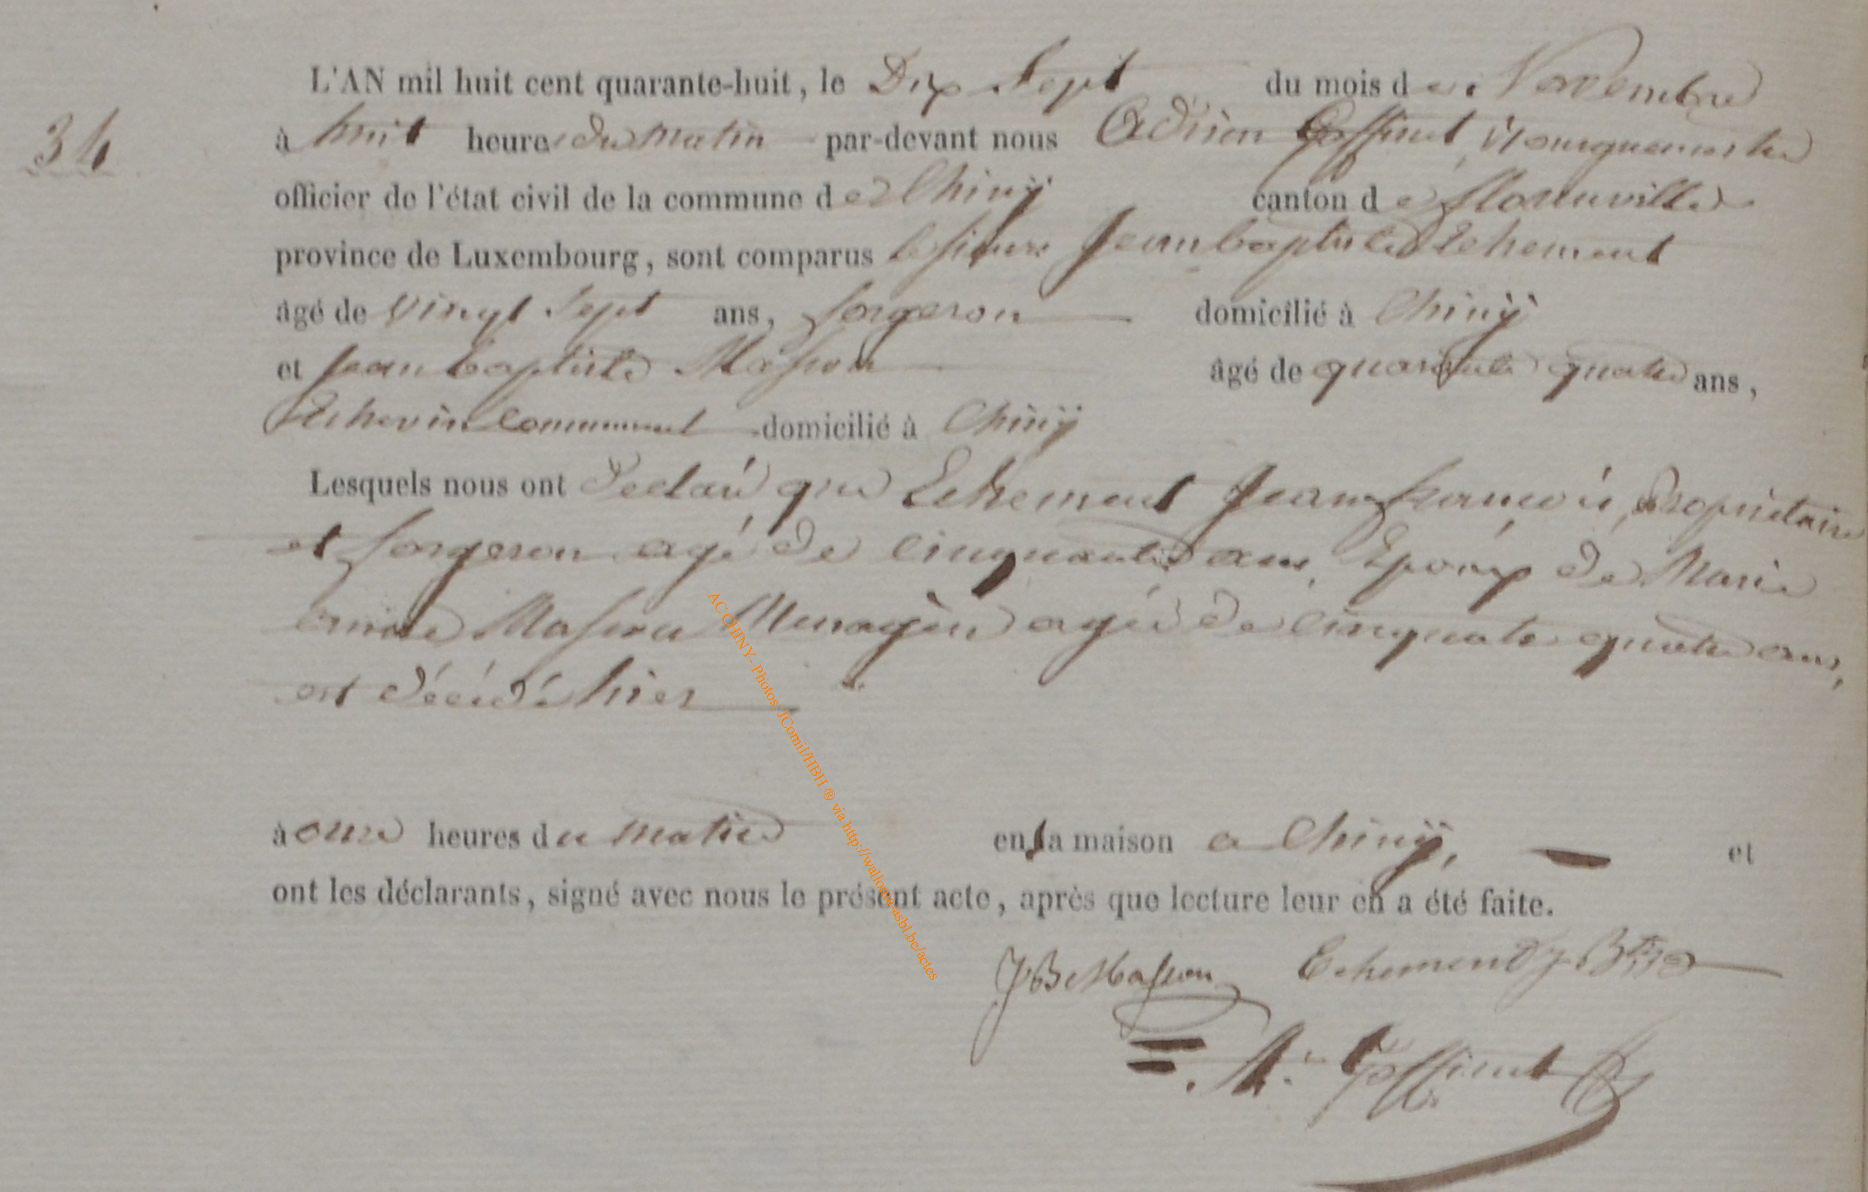 L'AN mil huit cent quarante-huit, le Dix Sept du mois de Novembre
34
à huit heures du matin par-devant nous Adrien Goffinet, Bourguemestre
officier de l'état civil de la commune de Chiny canton de Florenville
province de Luxembourg, sont comparus les sieurs Jean baptiste Echement
âgé de vingt Sept ans, forgeron domicilié à Chiny
et Jean baptiste Masson âgé de quarante quatre ans,
Echevin Communal domicilié à Chiny
Lesquels nous ont Declaré que Echement Jean françois, Propriétaire
et forgeron agé de cinquante ans, Epoux de Marie
Masson Menagère agée de cinquante quatre ans,
est décédé hier
à onze heures du matin en sa maison a Chiny, et
ont les déclarants, signé avec nous le présent acte, après que lecture leur en a été faite.
JB Masson Echement J Btste
An. Goffinet
AC CHINY - Photos JComil/HBH ® via http://wallonia-asbl.be/actes